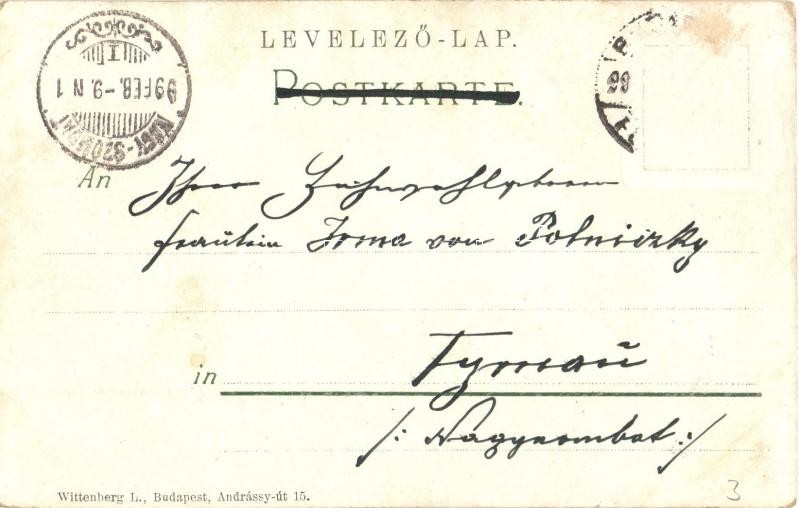 LEVELEZŐ-LAP.
POSTKARTE.
NAGY-SZOMBAT
99 FEB. -9. N 1
I
99
An Ihrer Hochwohlgeboren
Fräulein Irma von Potniczky
in Tyrnau
/: Nagyszombat :/
Wittenberg L., Budapest, Andrássy-út 15.
3